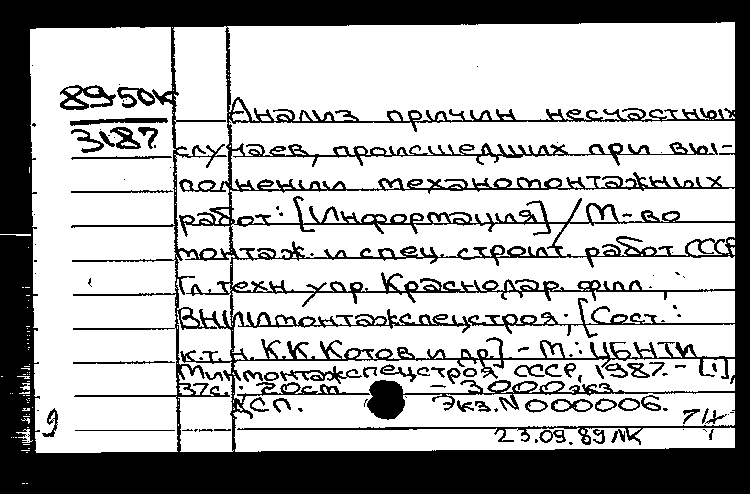 89-50к
3187
Анализ причин несчастных
случаев, происшедших при вы-
полнении механомонтажных
работ: [Информация] / М-во
монтаж. и спец. строит. работ СССР
Гл. техн. упр. Краснодар. фил.,
ВНИИмонтажспецстроя; [Сост.:
к.т.н. К.К. Котов и др.] - М.: ЦБНТИ
Минмонтажспецстроя СССР, 1987. - [1],
37с.; 20см. - 3000экз.
ДСП. Экз.N 000006.
9
23.09.89